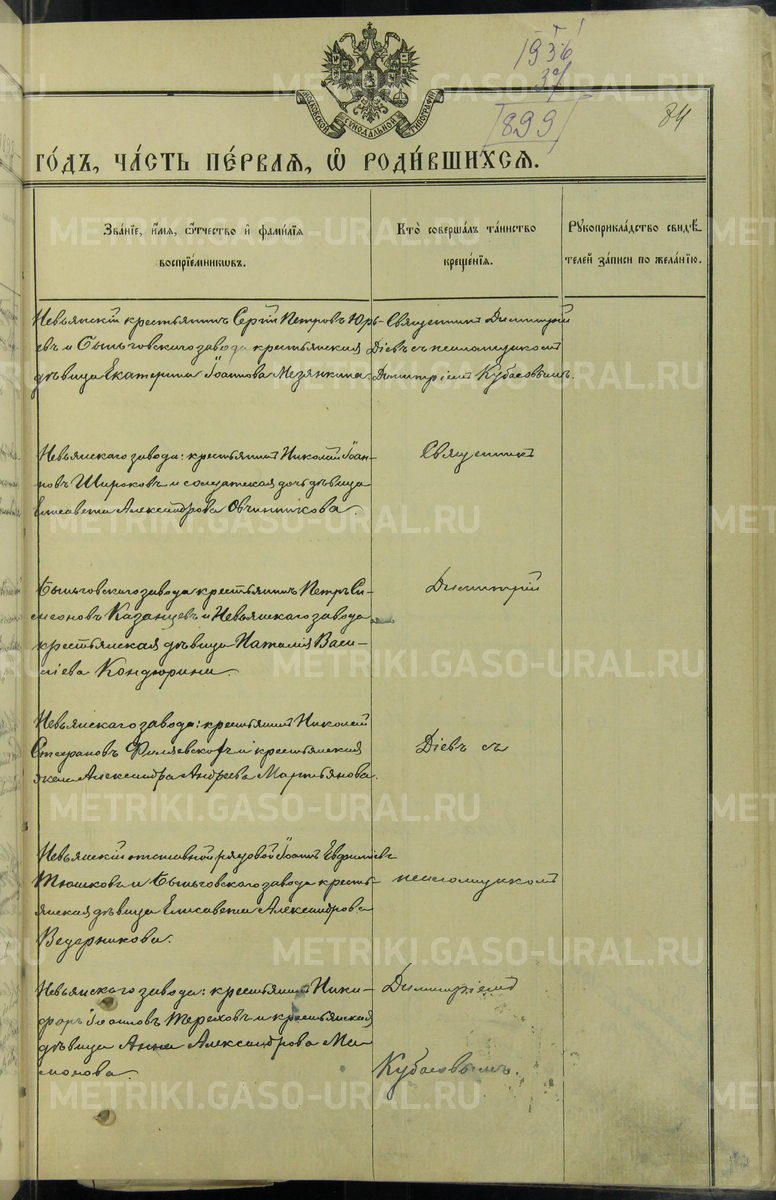 1936
37
899
84
МОСКОВСКОЙ СѴНОДАЛЬНОЙ ТИПОГРАФІИ
ГОДЪ, ЧАСТЬ ПЕРВАЯ, Ѡ РОДИВШИХСЯ.
Званіе, имя, отчество и фамилія
воспріемниковъ.
Кто совершалъ таинство
крещенія.
Рукоприкладство свидѣ-
телей записи по желанію.
Невьянскій крестьянинъ Сергій Петровъ Юрь-
евъ и Быньговскаго завода крестьянская
дѣвица Екатерина Іоаннова Мезянкина.
Священникъ Димитрій
Діевъ съ псаломщикомъ
Димитріемъ Кубасовымъ.
Невьянскаго завода: крестьянинъ Николай Іоан-
новъ Широковъ и солдатская дочь дѣвица
Елисавета Александрова Овчинникова.
Священникъ
Быньговскаго завода крестьянинъ Петръ Си-
меоновъ Казанцевъ и Невьянскаго завода
крестьянская дѣвица Наталія Васи-
ліева Кондюрина.
Димитрій
Невьянскаго завода: крестьянинъ Николай
Стефановъ и крестьянская
жена Александра Андреева Мартьянова.
Діевъ съ
Невьянскій отставной рядовой Іоаннъ
Тюшковъ и Быньговскаго завода кресть-
янская дѣвица Елисавета Александрова
Ведерникова.
псаломщикомъ
Невьянскаго завода: крестьянинъ Ники-
форъ Іоанновъ Тереховъ и крестьянская
дѣвица Анна Александрова Ма-
монова.
Димитріемъ
Кубасовымъ.
METRIKI.GASO-URAL.RU